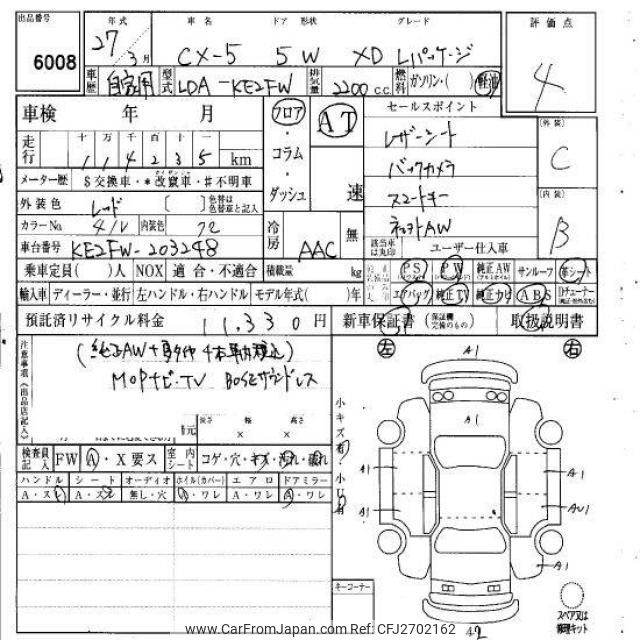 出品番号 年式 車名 ドア 形状 グレード 評価点
6008 27 3月 CX-5 5 W XD Lパッケージ 4
車歴 自家用 型式 LDA-KE2FW 排気量 2200 c.c. 燃料 ガソリン・( ) 軽油
車検 年 月 フロア AT セールスポイント
走行 十 万 千 百 十 一 ・ レザーシート 外装
1 1 4 2 3 5 km コラム バックカメラ C
メーター歴 $交換車・*改竄車・#不明車 ・ スマートキー
外装色 レッド [ ] 色替は色替車と記入 ダッシュ 速 内装
カラーNo 41V 内装色 72 冷房 AAC 無 該当車は丸印 ユーザー仕入車 B
車台番号 KE2FW-203248
乗車定員( )人 NOX 適合・不適合 積載量 kg PS PW 純正AW サンルーフ 革シート
輸入車 ディーラー・並行 左ハンドル・右ハンドル モデル年式( )年 エアバッグ 純正TV 純正ナビ ABS
預託済リサイクル料金 11.330円 新車保証書 取扱説明書
注意事項(出品店記入) 左 A1 右
MOPナビ・TV BOSEサウンドレス
長さ 幅 高さ
× ×
A1
検査員記入 FW A・X要ス 室内シート コゲ・穴・キズ・汚れ・破れ
ハンドル シート オーディオ ホイル(カバー) エアロ ドアミラー
A・ス A・ス 無し・穴 A・ワレ A・ワレ A・ワレ
小キズ有 小凹有
A1 A1
A1 AU1
A1
キーコーナー
スペア又は修理キット
www.CarFromJapan.com Ref: CFJ2702162